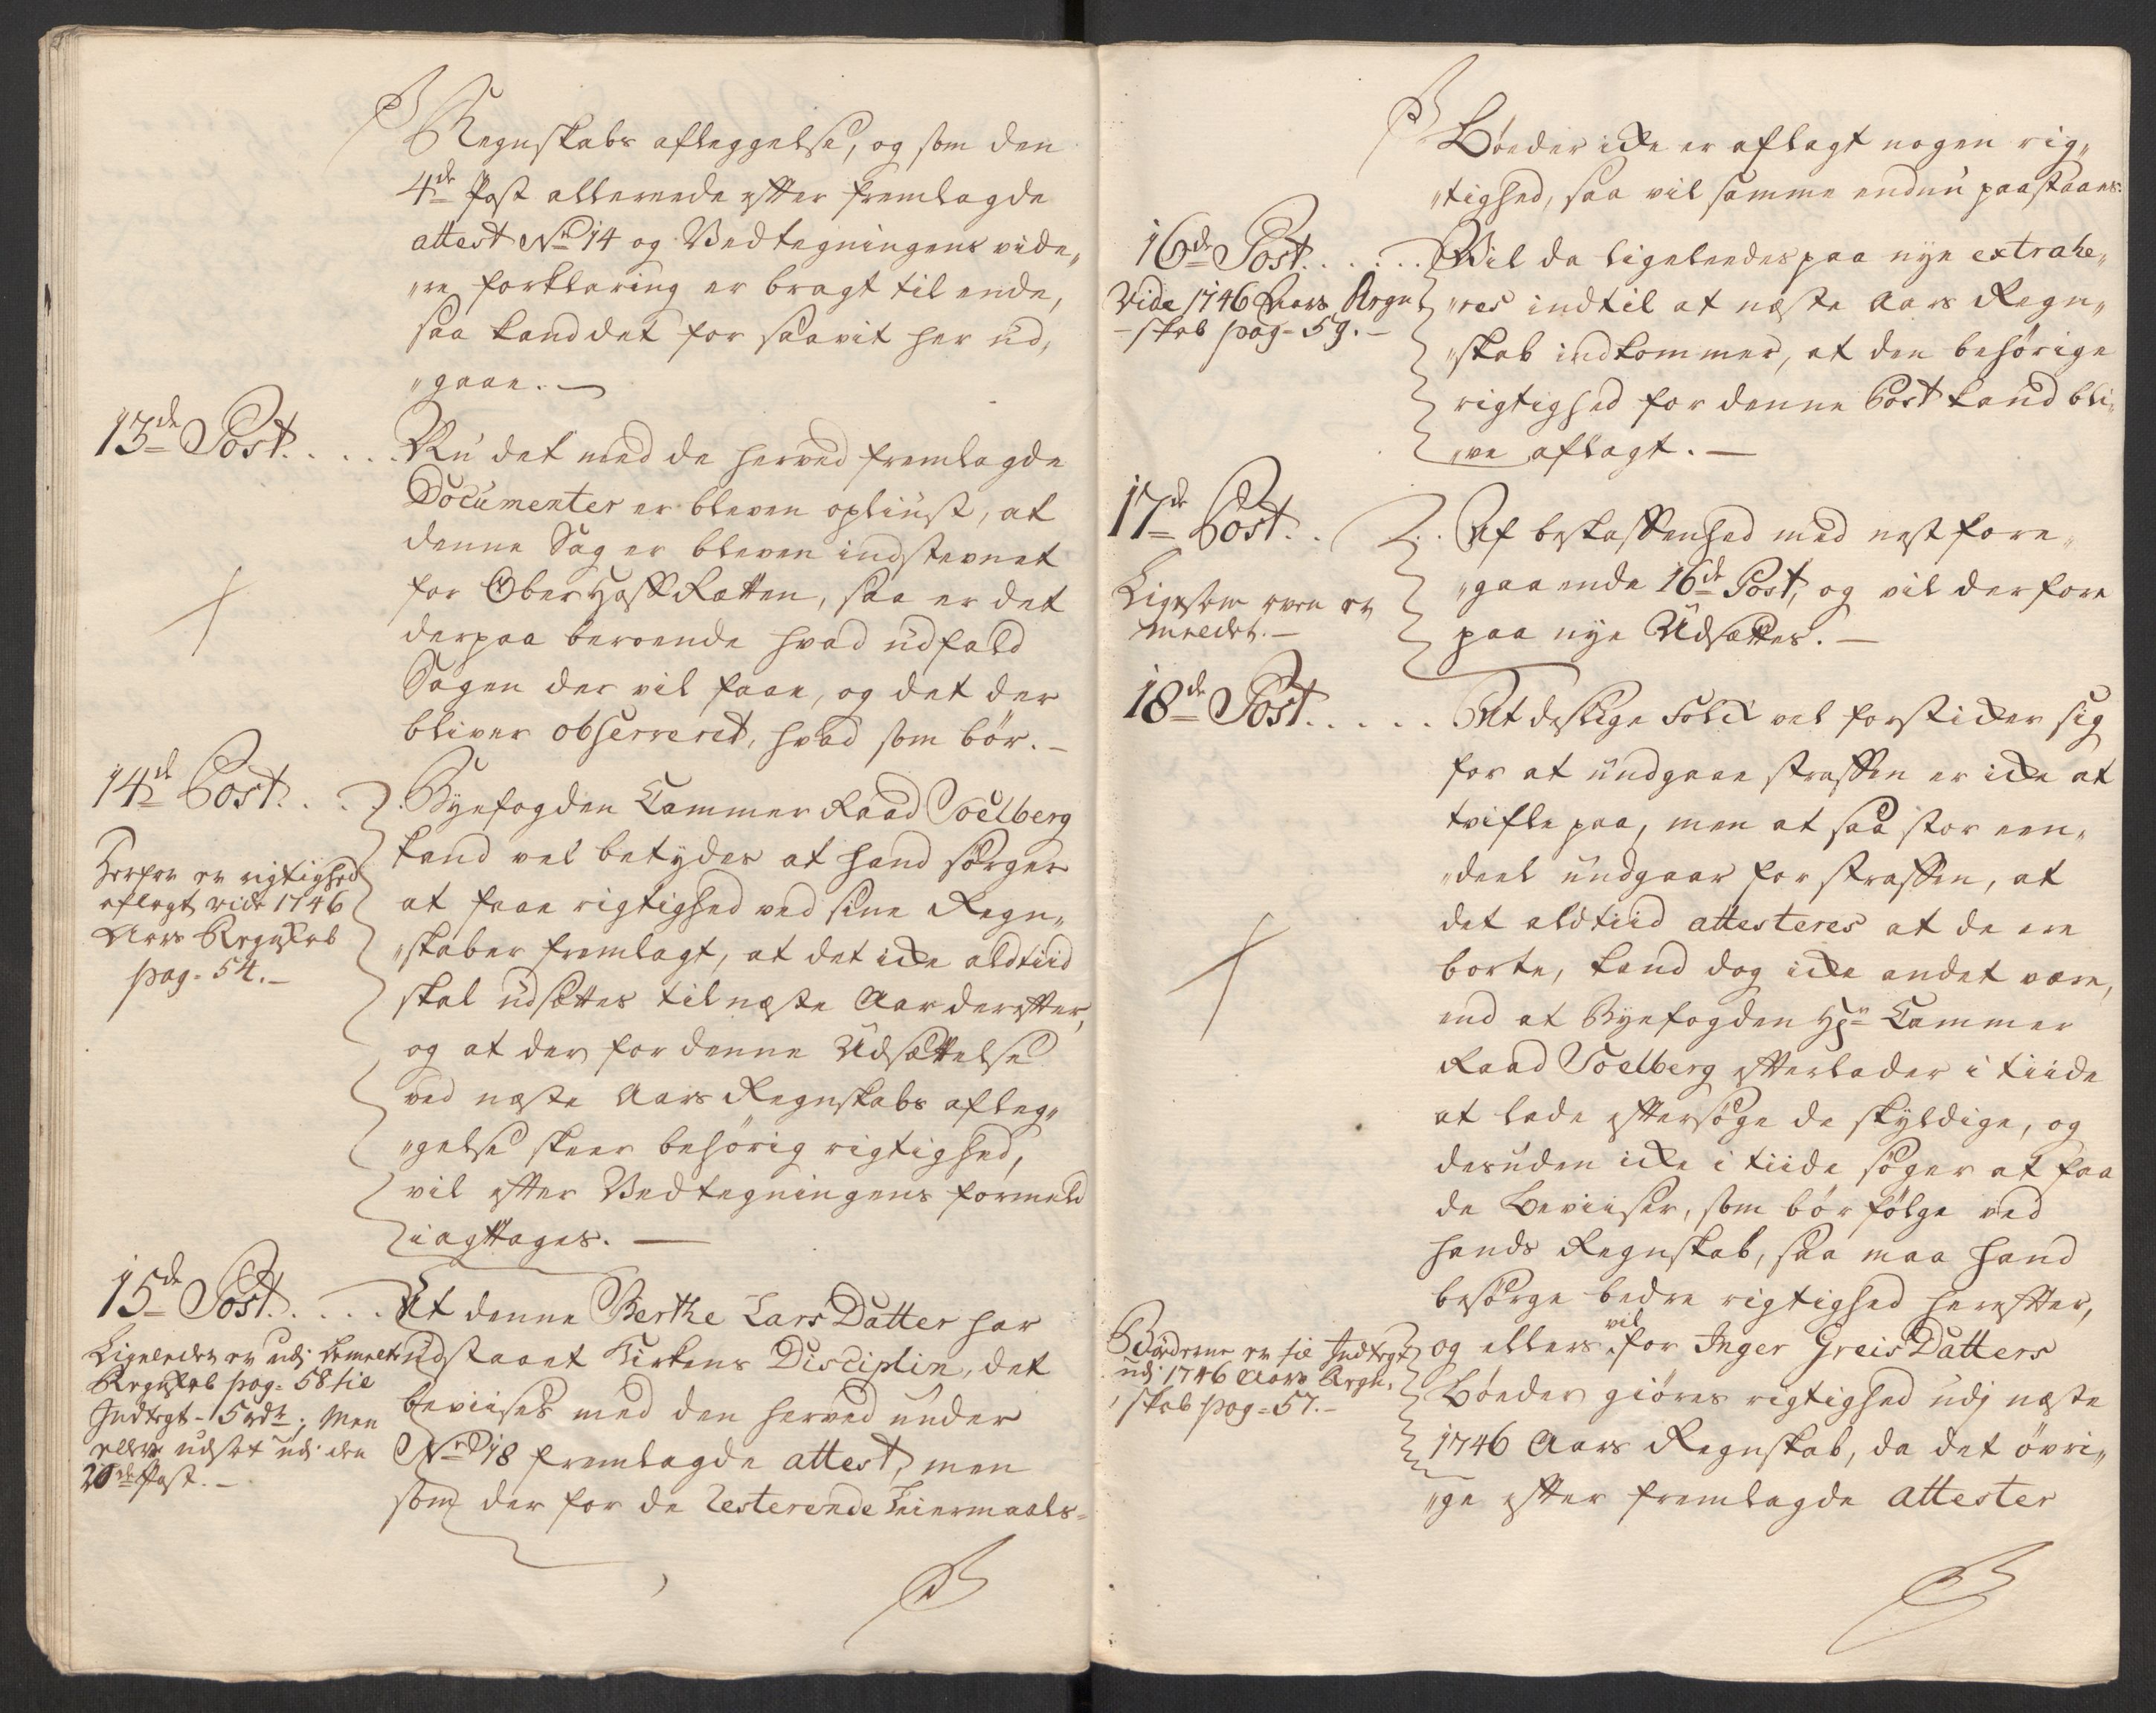 Regnskabs afleggelse, og som den
4de Post allereede efter fremlagde
attest No 14 og Vedtegningens vide„
„re forklaring er bragt til ende,
saa kand det for saavit her ud„
„gaae. —
13de Post. . . . Nu det med de herved fremlagde
Documenter er bleven opliust, at
denne Sag er bleven indstevnet
for Ober Hoff Retten, saa er det
derpaa beroende hvad udfald
Sagen der vil faae, og det der
bliver observeret, hvad som bör. —
14de Post. . . Byefogden Cammer Raad Soelberg
kand vel betydes at hand sörger
at faae rigtighed ved sine Regn„
„skaber fremlagt, at det icke aldtiid
skal udsættes til næste Aar derefter,
og at der for denne Udsættelse
ved næste Aars Regnskabs afleg„
„gelse skeer behörig rigtighed,
vil efter Vedtegningens formeld
iagttages. —
Herfor er rigtighed
aflagt vide 1746
Aars Regnskab
pag. 54. —
15de Post. . . . At denne Berthe Lars Datter har
udstaaet Kirkens Disciplin, det
beviises med den herved under
No 18 fremlagde attest, men
som der for de resterende Leiermaals-
Ligeledes er udj bemelte
Regnskab pag. 58 til
Indtegt - 5 rdr; Men
ellers udsat udj den
20de Post. —
Böeder icke er aflagt nogen rig„
„tighed, saa vil samme endnu paastaaes.
16de Post. . . . . Vil da ligeleedes paa nye extrahe„
„res indtil at næste Aars Regn„
„skab indkommer, at den behörige
rigtighed for denne Post kand bli„
„ve aflagt. —
Vide 1746 Aars Regn
-skab pag. 59. —
17de Post. . . . Af beskaffenhed med nest fore„
„gaaende 16de Post, og vil derfore
paa nye Udsættes. —
Ligesom oven er
meldt. —
18de Post. . . . . At deslige Folck vel forsticker sig
for at undgaae straffen er icke at
tvifle paa, men at saa stor een„
„deel undgaar for straffen, at
det aldtiid attesteres at de ere
borte, kand dog icke andet være,
end at Byefogden Hr. Cammer
Raad Soelberg efterlader i tiide
at lade eftersöge de skyldige, og
desuden icke i tiide söger at faa
de Beviiser, som bör fölge ved
hands Regnskab, saa maa hand
besörge bedre rigtighed herefter,
og ellers vil for Inger Greis Datters
Böeder giöres rigtighed udj næste
1746 Aars Regnskab, da det övri„
„ge efter fremlagde attester
Böderne er til Indtegt
udj 1746 Aars Regn„
„skab pag. 57. —